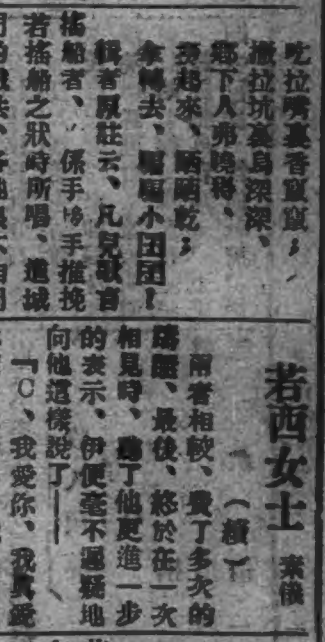 吃拉嘴裏香竄竄；
撒拉坑裏烏深深、
鄉下人弗曉得、
拿轉去、
小囝囝！
輯者原註云、凡兒歌言
搖船者、係手拉手推挽
若搖船之狀時所唱、道城
若西女士
（續）
素儀
兩者相較、費了多次的
躊躇、最後、終於在一次
相見時、聽了他更進一步
的表示、伊便毫不遲疑地
向他這樣說了——
「C、我愛你、我真愛